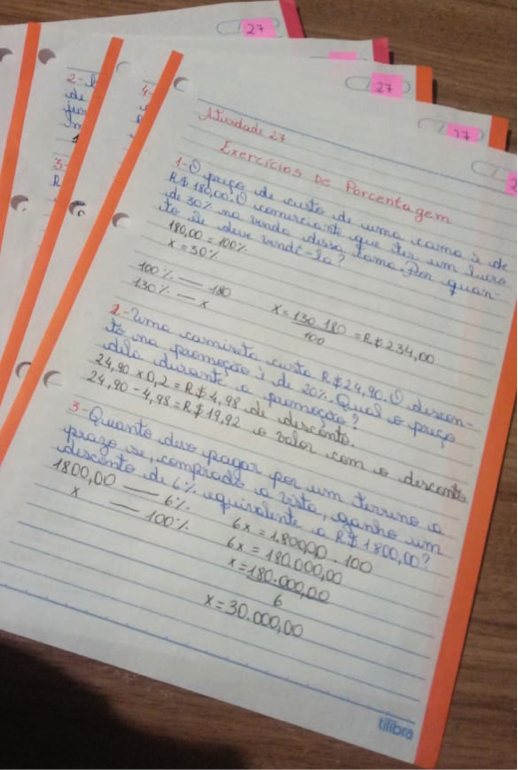 27
27
27
2
2-
de
4-
3-
R
Atividade 27
Exercícios de Porcentagem
1-O preço de custo de uma cama é de
R$ 180,00. O comerciante que ter um lucro
de 30% na venda dessa cama. Por quan-
to se deve vendê-la?
180,00 = 100%
x = 30%
100% — 180
130% — x
x = 130.180 = R$ 234,00
100
2-Uma camiseta custa R$ 24,90. O descon-
to na promoção é de 20%. Qual o preço
dela durante a promoção?
24,90 x 0,2 = R$ 4,98 de desconto.
24,90 - 4,98 = R$ 19,92 o valor com o desconto
3-Quanto devo pagar por um terreno a
prazo se, comprado a vista, ganho um
desconto de 6% equivalente a R$ 1800,00?
1800,00 — 6%
x — 100%
6x = 1.800,00 . 100
6x = 180.000,00
x = 180.000,00
6
x = 30.000,00
tilibra